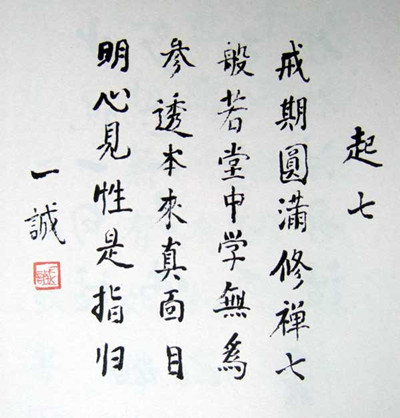 起七
戒期圓滿修禪七
般若堂中学無為
参透本来真面目
明心見性是指归
一誠